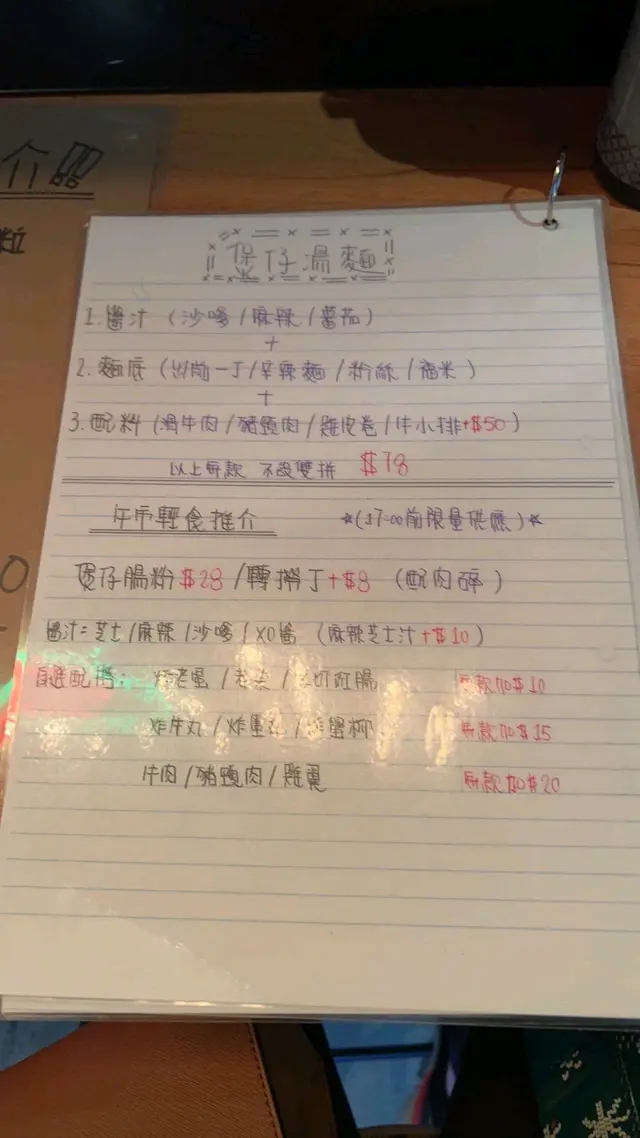 介
粒
煲仔湯麵
1. 醬汁 (沙嗲/麻辣/蕃茄)
+
2. 麵底 (出前一丁/辛辣麵/粉絲/福米)
+
3. 配料 (滑牛肉/豬頸肉/雞皮卷/牛小排+$50)
以上每款 不設雙拼 $78
午市輕食推介 ☆(17:00前限量供應)☆
煲仔腸粉 $28 /轉拼丁+$8 (配肉碎)
醬汁: 芝士/麻辣/沙嗲/XO醬 (麻辣芝士汁+$10)
自選配搭: 紅腸 每款加$10
炸牛丸/炸蛋 /炸蟹柳 每款加$15
牛肉/豬頸肉/雞翼 每款加$20